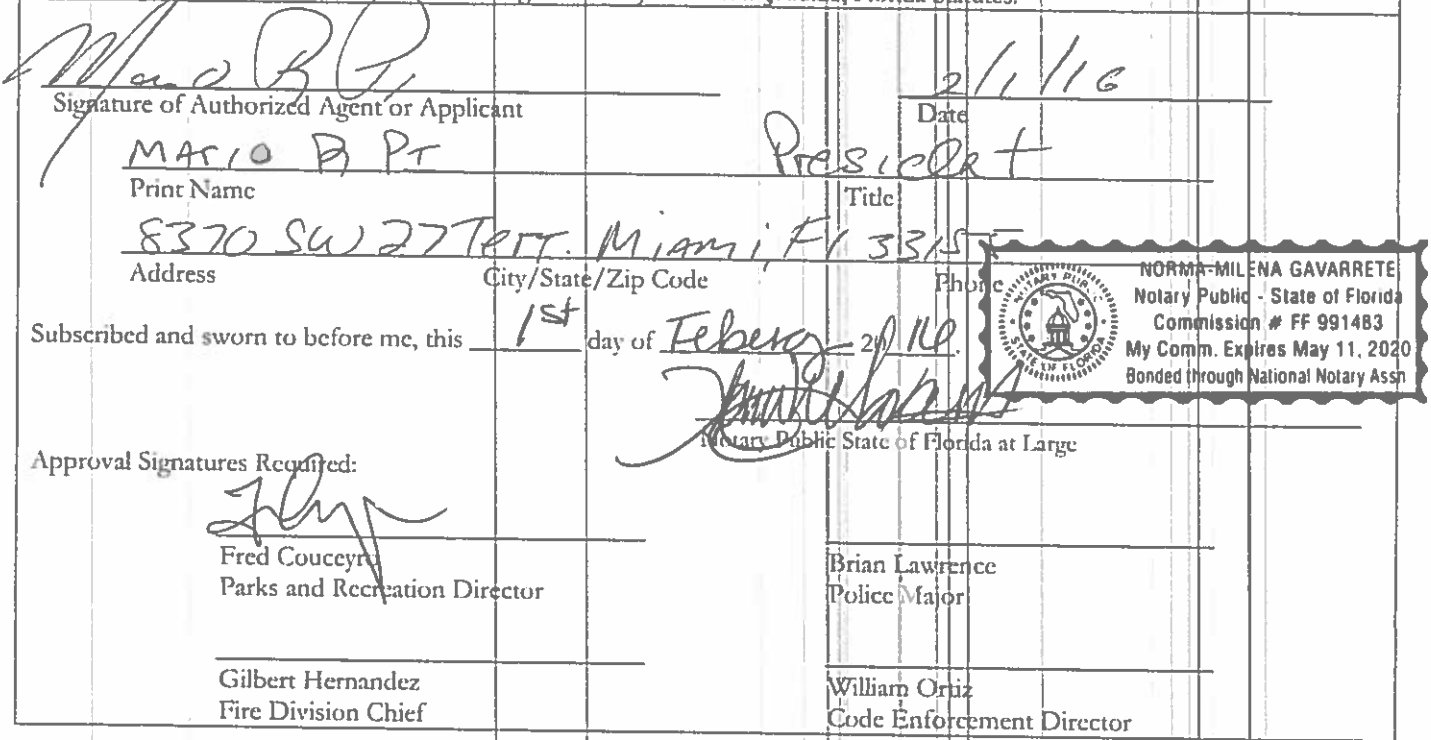 2/1/16
Signature of Authorized Agent or Applicant Date
Mario B PI President
Print Name Title
8370 SW 27 Terr. Miami, Fl 33155
Address City/State/Zip Code Phone
NORMA-MILENA GAVARRETE
Notary Public - State of Florida
Commission # FF 991483
My Comm. Expires May 11, 2020
Bonded through National Notary Assn
NOTARY PUBLIC
STATE OF FLORIDA
Subscribed and sworn to before me, this 1st day of Feberary 2016.
Notary Public State of Florida at Large
Approval Signatures Required:
Fred Couceyro
Parks and Recreation Director
Brian Lawrence
Police Major
Gilbert Hernandez
Fire Division Chief
William Ortiz
Code Enforcement Director